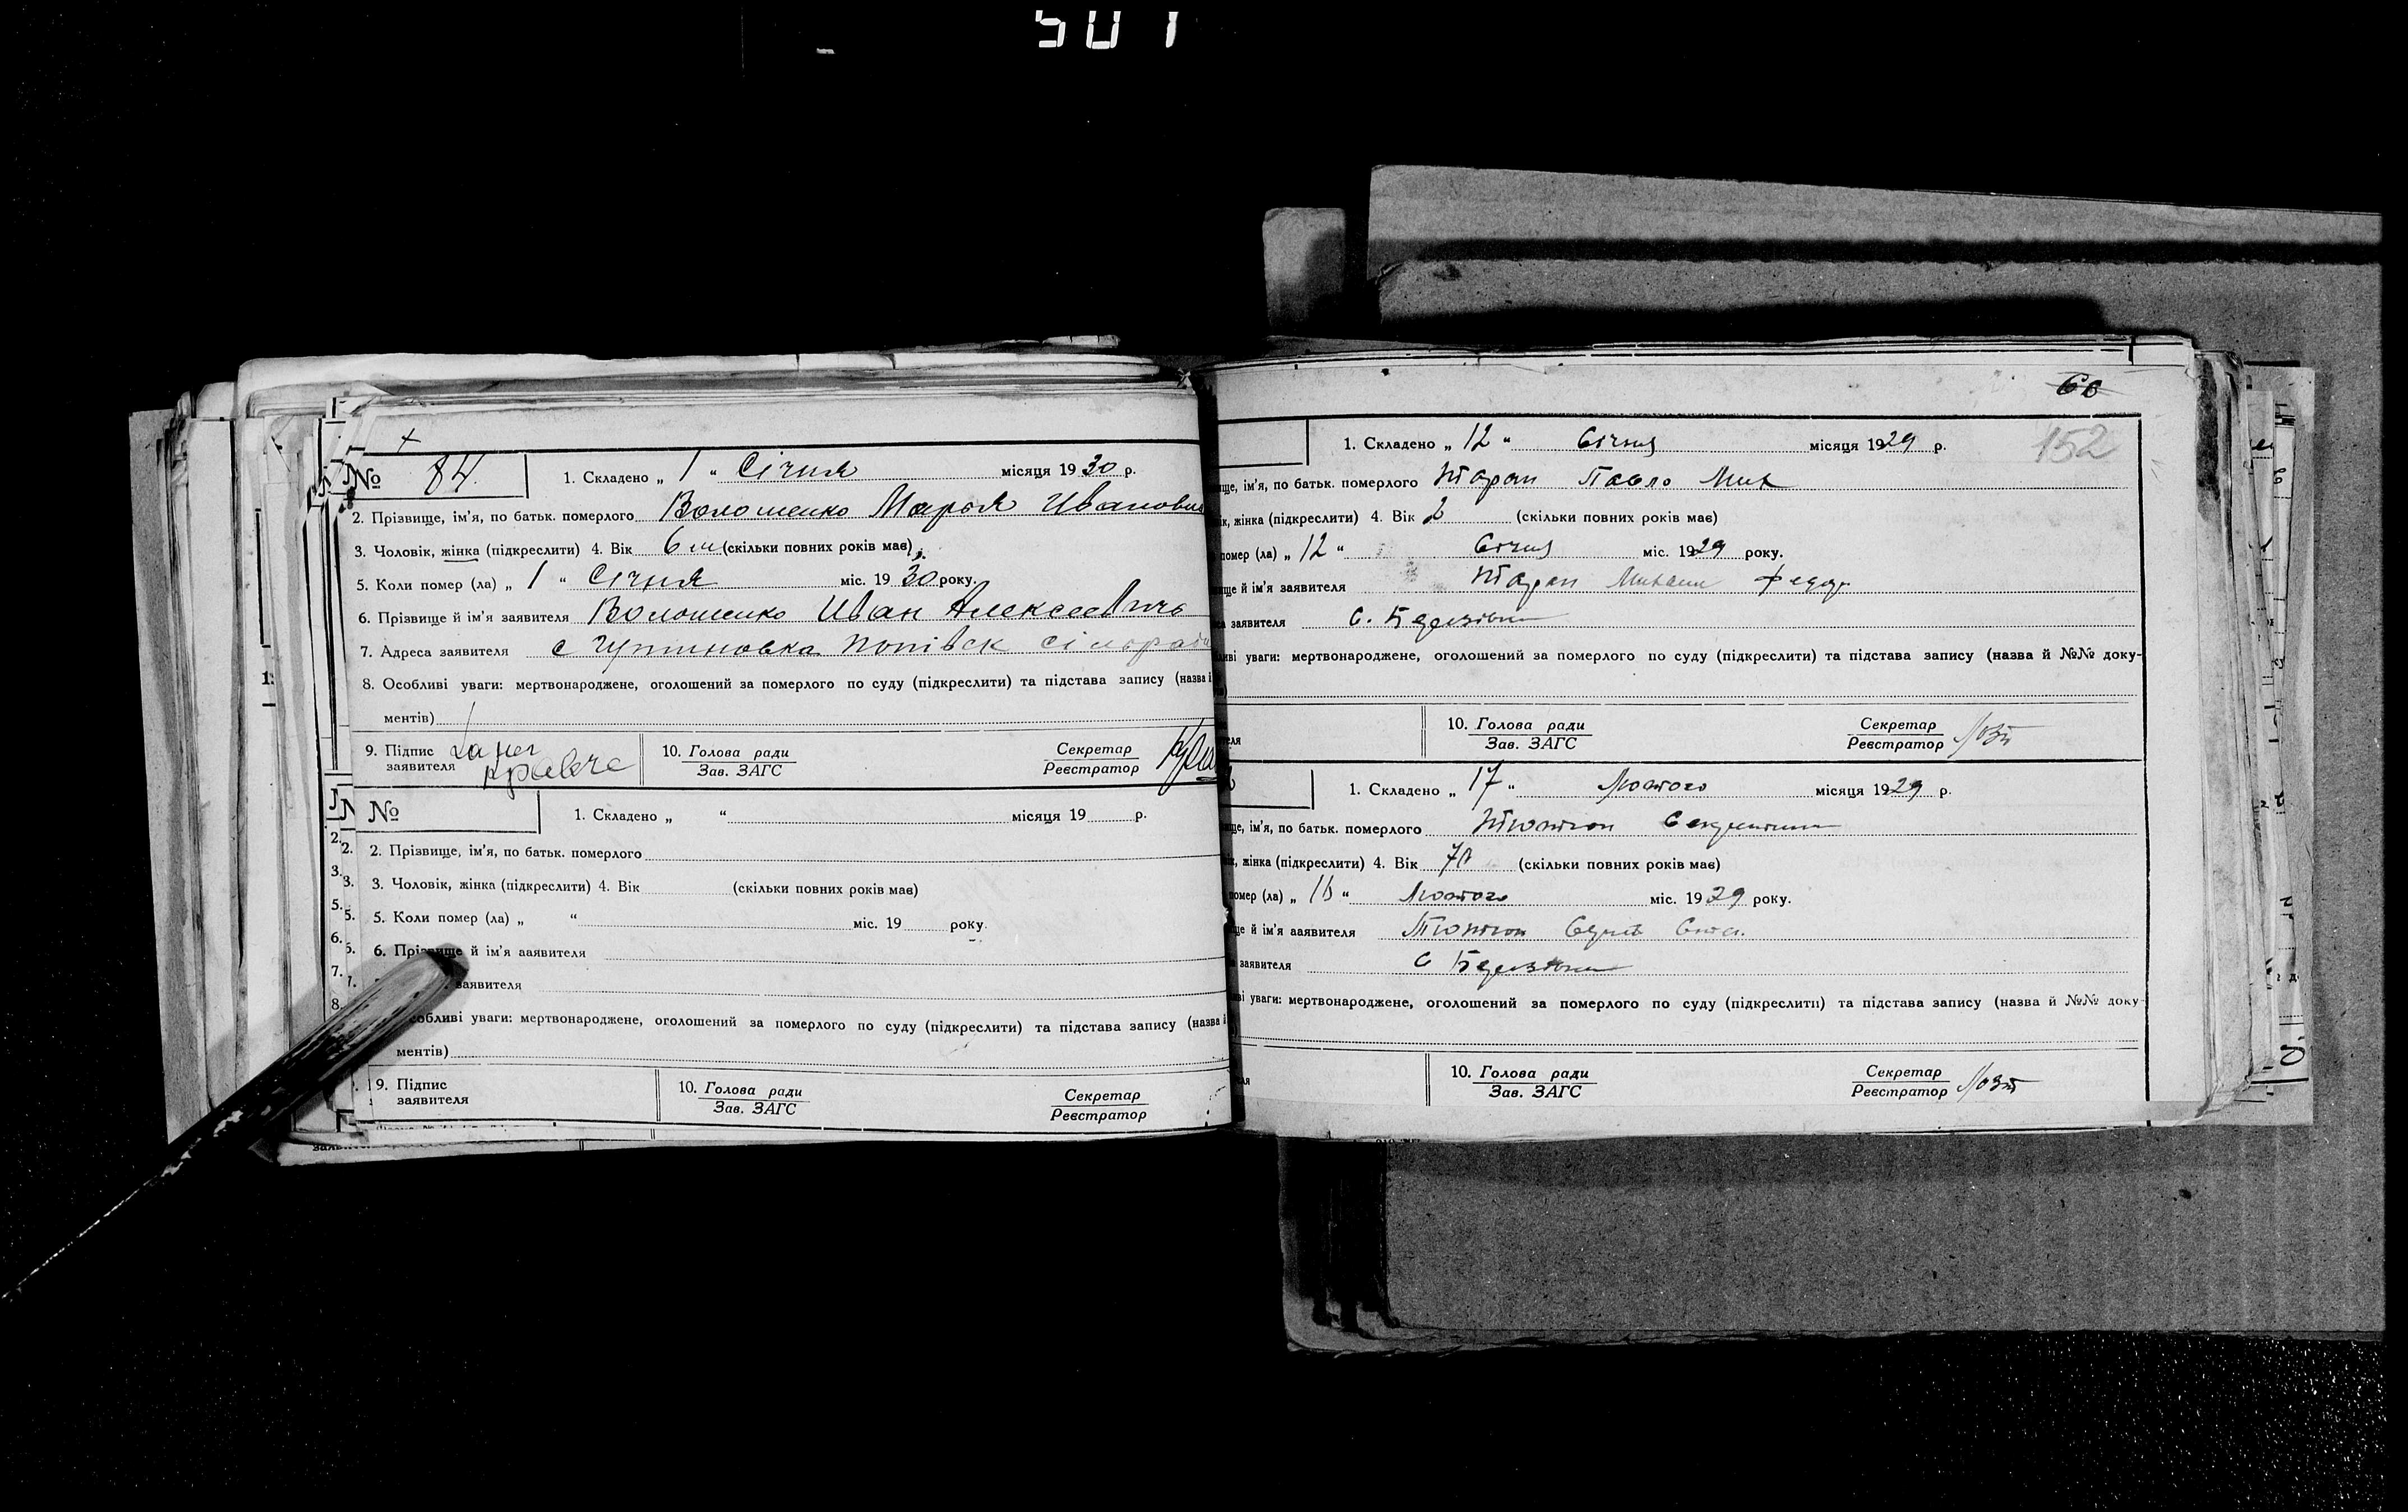 501
№ 84. 1. Складено „ 1 " Січня місяця 1930 р.
2. Прізвище, ім'я, по батьк. померлого Волошенко Марья Ивановна
3. Чоловік, жінка (підкреслити) 4. Вік 6 м (скільки повних років має)
5. Коли помер (ла) „ 1 " Січня міс. 1930 року.
6. Прізвище й ім'я заявителя Волошенко Иван Алексеевичъ
7. Адреса заявителя с Чутиновка Попівск сільради
8. Особливі уваги: мертвонароджене, оголошений за померлого по суду (підкреслити) та підстава запису (назва і
ментів)
9. Підпис
заявителя
10. Голова ради
Зав. ЗАГС
Секретар
Реєстратор
№ 1. Складено „ " місяця 19 р.
2. Прізвище, ім'я, по батьк. померлого
3. Чоловік, жінка (підкреслити) 4. Вік (скільки повних років має)
5. Коли помер (ла) „ " міс. 19 року
6. Прізвище й ім'я заявителя
заявителя
собливі уваги: мертвонароджене, оголошений за померлого по суду (підкреслити) та підстава запису (назва і
ментів)
9. Підпис
заявителя
10. Голова ради
Зав. ЗАГС
Секретар
Реєстратор
152
1. Складено „ 12 " Січня місяця 1929 р.
ще, ім'я, по батьк. померлого Таран Павло Мих
ік, жінка (підкреслити) 4. Вік 2 (скільки повних років має)
помер (ла) „ 12 " Січня міс. 1929 року.
ще й ім'я заявителя Таран Михаил Федор
заявителя с.
ливі уваги: мертвонароджене, оголошений за померлого по суду (підкреслити) та підстава запису (назва й №№ доку-
10. Голова ради
Зав. ЗАГС
Секретар
Реєстратор
1. Складено „ 17 " Лютого місяця 1929 р.
ще, ім'я, по батьк. померлого
к, жінка (підкреслити) 4. Вік 70 (скільки повних років має)
помер (ла) „ 16 " Лютого міс. 1929 року.
ще й ім'я заявителя
заявителя с
ві уваги: мертвонароджене, оголошений за померлого по суду (підкреслити) та підстава запису (назва й №№ доку-
10. Голова ради
Зав. ЗАГС
Секретар
Реєстратор